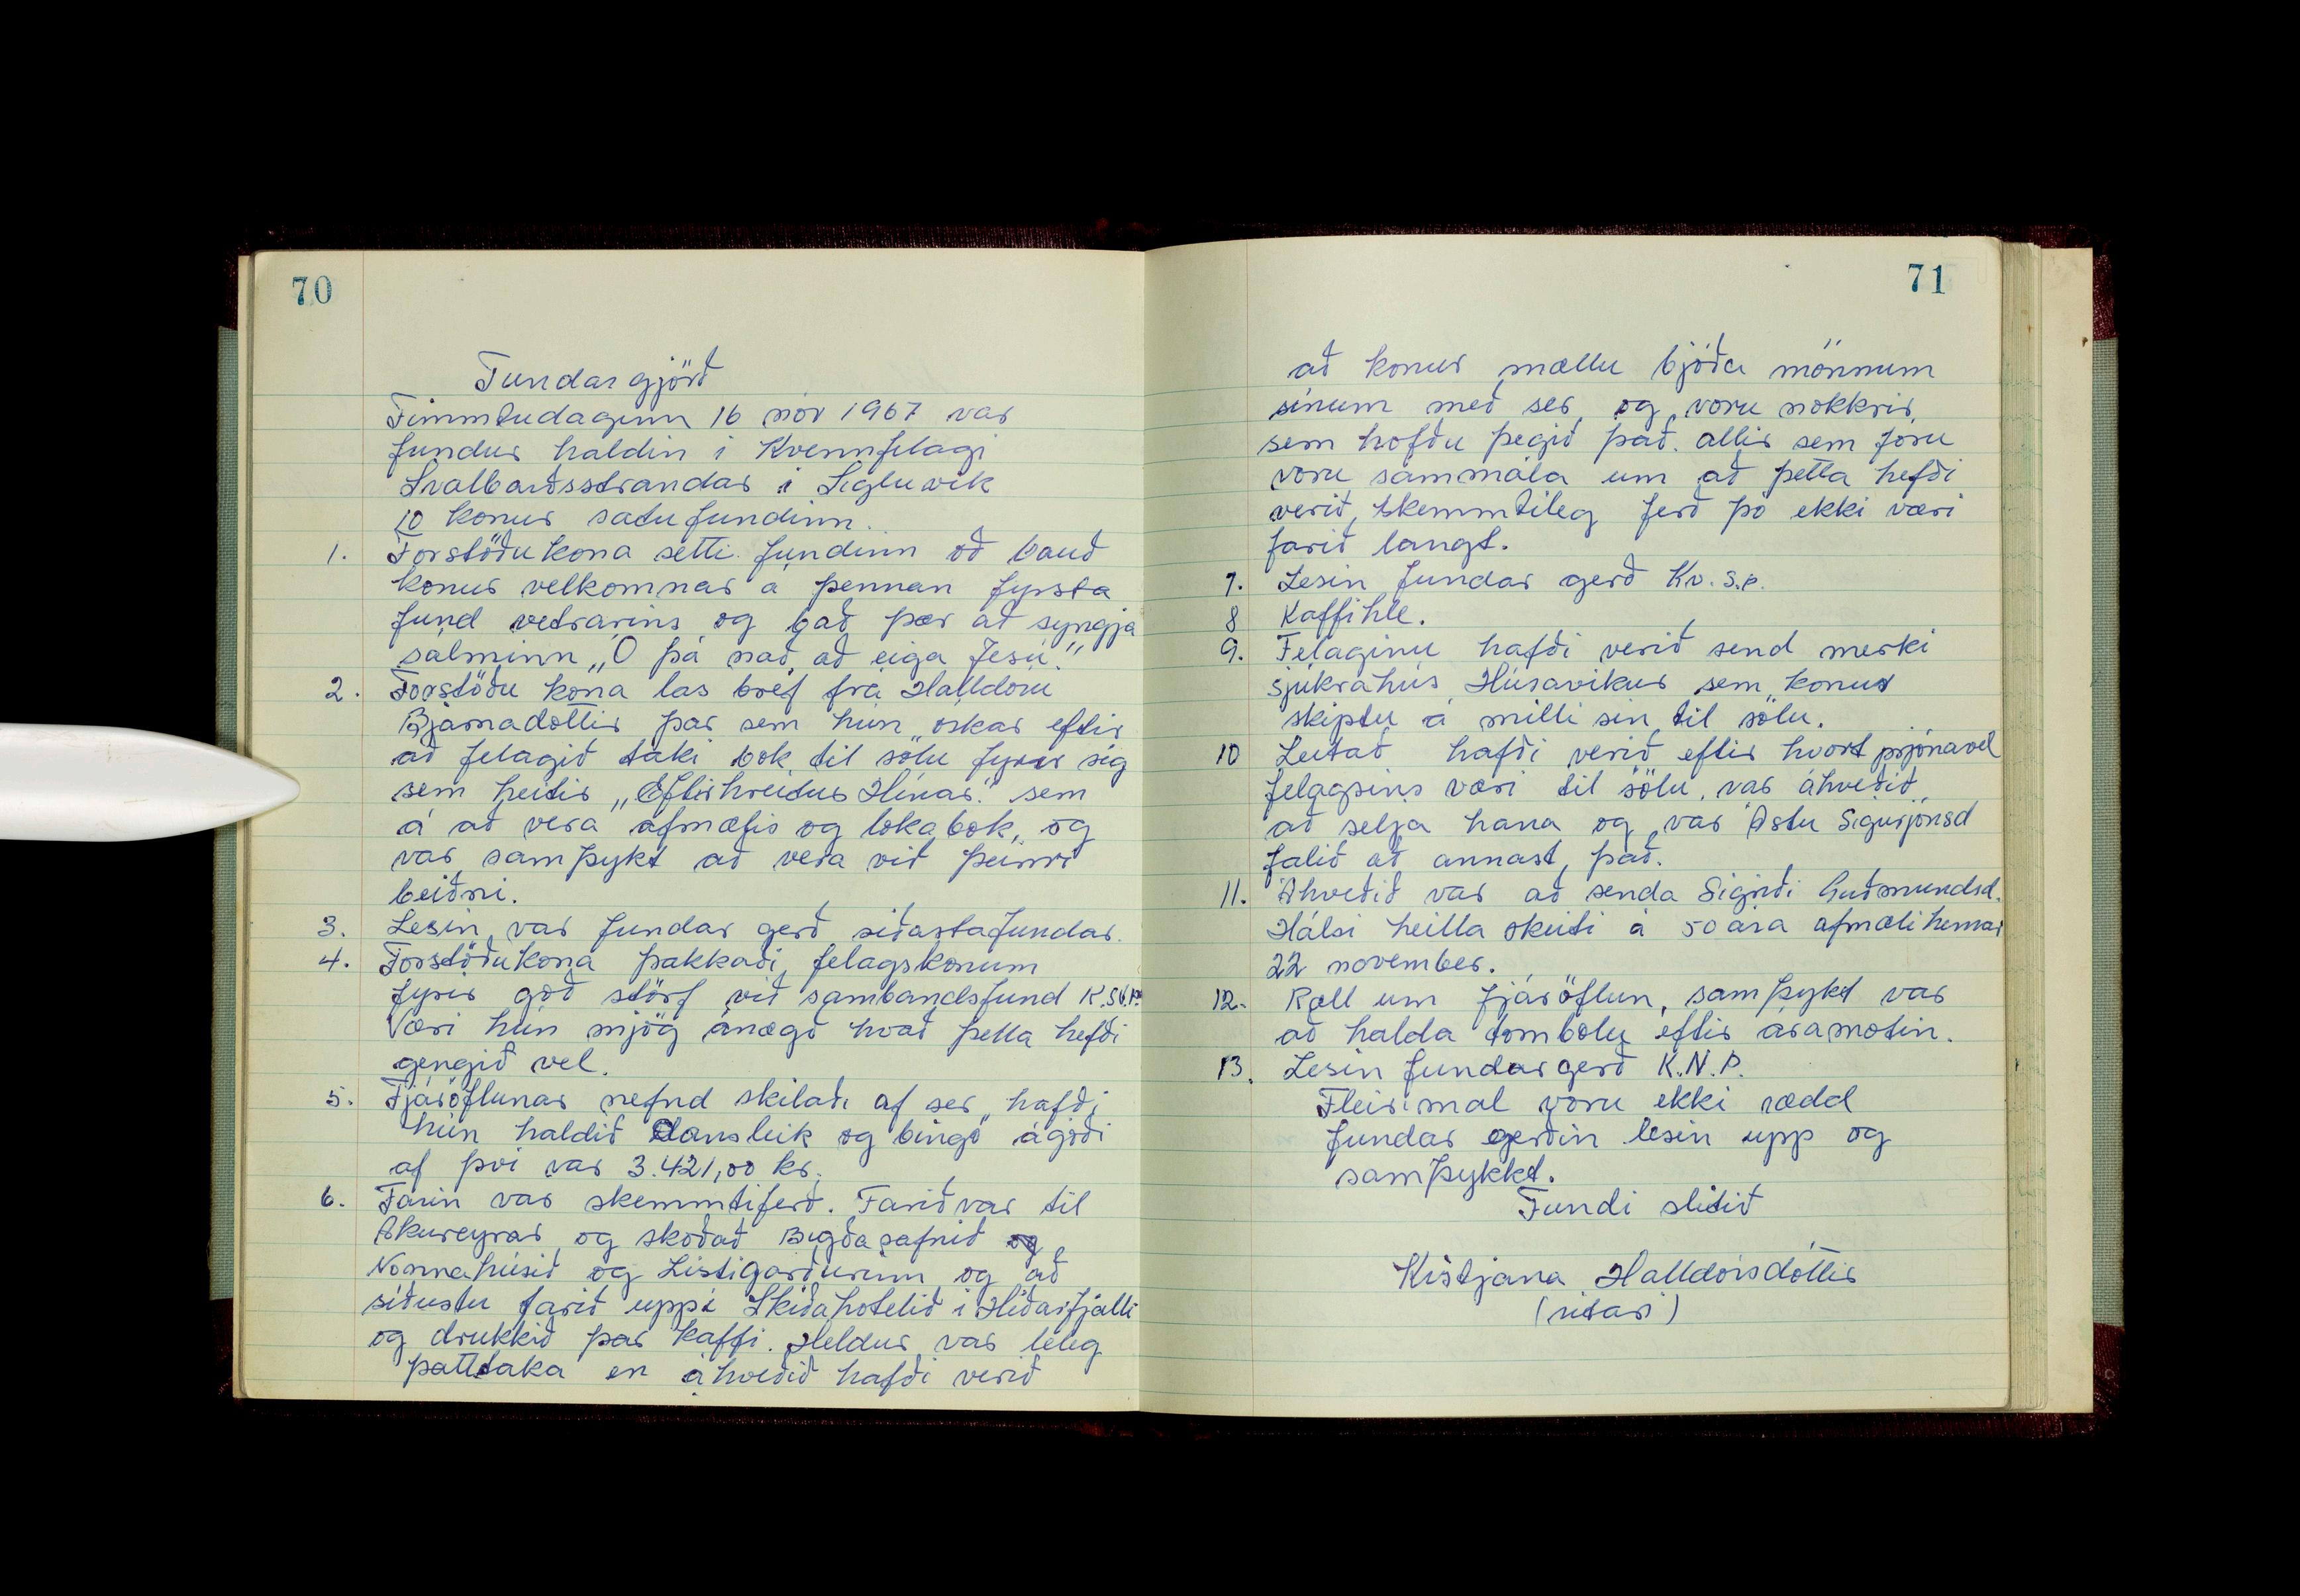 70
Fundargjörð
Fimmtudaginn 16 nóv 1967 var
fundur haldin i Kvennfelagi
Svalbarðsstrandar i Sigluvík
10 konur satu fundinn.
1. Forstöðukona setti fundinn oð bauð
konur velkomnar á þennan fyrsta
fund vetrarins og bað þær að syngja
salminn „Ó þá náð að eiga Jesú."
2. Forstöðu kona las bréf frá Halldóru
Bjarnadóttir þar sem hún oskar eftir
að felagið taki bok til sölu fyrir sig
sem heitir „Eftirhreitur Hlínar." sem
á að vera afmælis og lokabok, og
var samþykt að vera við þeirri
beiðni.
3. Lesin var fundar gerð siðastafundar.
4. Forstöðukona þakkaði felagskonum
fyrir góð störf við sambandsfund K.S.Þ.
Væri hún mjög ánægð hvað þetta hefði
gengið vel.
5. Fjáröflunar nefnd skilaði af ser, hafði
hún haldið Dansleik og bingó ágóði
af því var 3.421,00 kr.
6. Farin var skemmtiferð. Farið var til
Akureyrar og skoðað Bygðasafnið og
Nonnahúsið og Listigarðurinn og að
siðustu farið uppí Skiðahotelið i Hliðarfjalli
og drukkið þar kaffi. Heldur var leleg
þátttaka en ákveðið hafði verið
71
að konur mættu bjóða mönnum
sínum með ser og voru nokkrir
sem hofðu þegið það. allir sem fóru
voru sammála um að þetta hefði
verið skemmtileg ferð þó ekki væri
farið langt.
7. Lesin fundar gerð Kv. S.Þ.
8 Kaffihle.
9. Felaginu hafði verið send merki
sjúkrahús Húsavíkur sem konur
skiptu á milli sin til sölu.
10 Leitað hafði verið eftir hvort prjónavel
felagsins væri til sölu, var ákveðið
að selja hana og var Ástu Sigurjónsd
falið að annast það.
11. Ákveðið var að senda Sigriði Guðmundsd.
Hálsi heilla skeiti á 50 ára afmæli hennar
22 november.
12. Rætt um fjáröflun, samþykt var
að halda tombolu eftir áramotin.
13. Lesin fundargerð K.N.Þ.
Fleiri mal voru ekki rædd
fundar gerðin lesin upp og
samþykkt.
Fundi slitið
Kristjana Halldórsdóttir
(ritari)